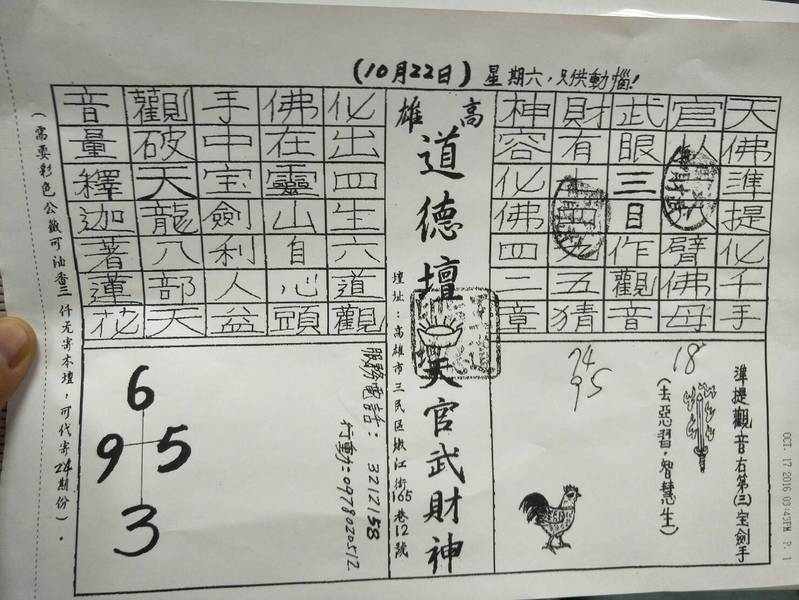 (10月22日) 星期六，只供動惱!
天佛準提化千手
官以臂佛母
武眼三目作觀音
財有五猜
神容化佛四二章
高雄
道德壇
天官武財神
壇址：高雄市三民區嫩江街165巷12號
化出四生六道觀
佛在靈山自心頭
手中宝劍利人益
觀破天龍八部天
音量釋迦著蓮花
準提觀音右第(三)宝劍手
(去惡習，智慧生)
18
74
95
服務電話：3212158
行動：0978020512
6
9 5
3
(需要彩色公籤可油香三仟元寄本壇，可代寄24期份)。
OCT. 17 2016 03:43PM P. 1